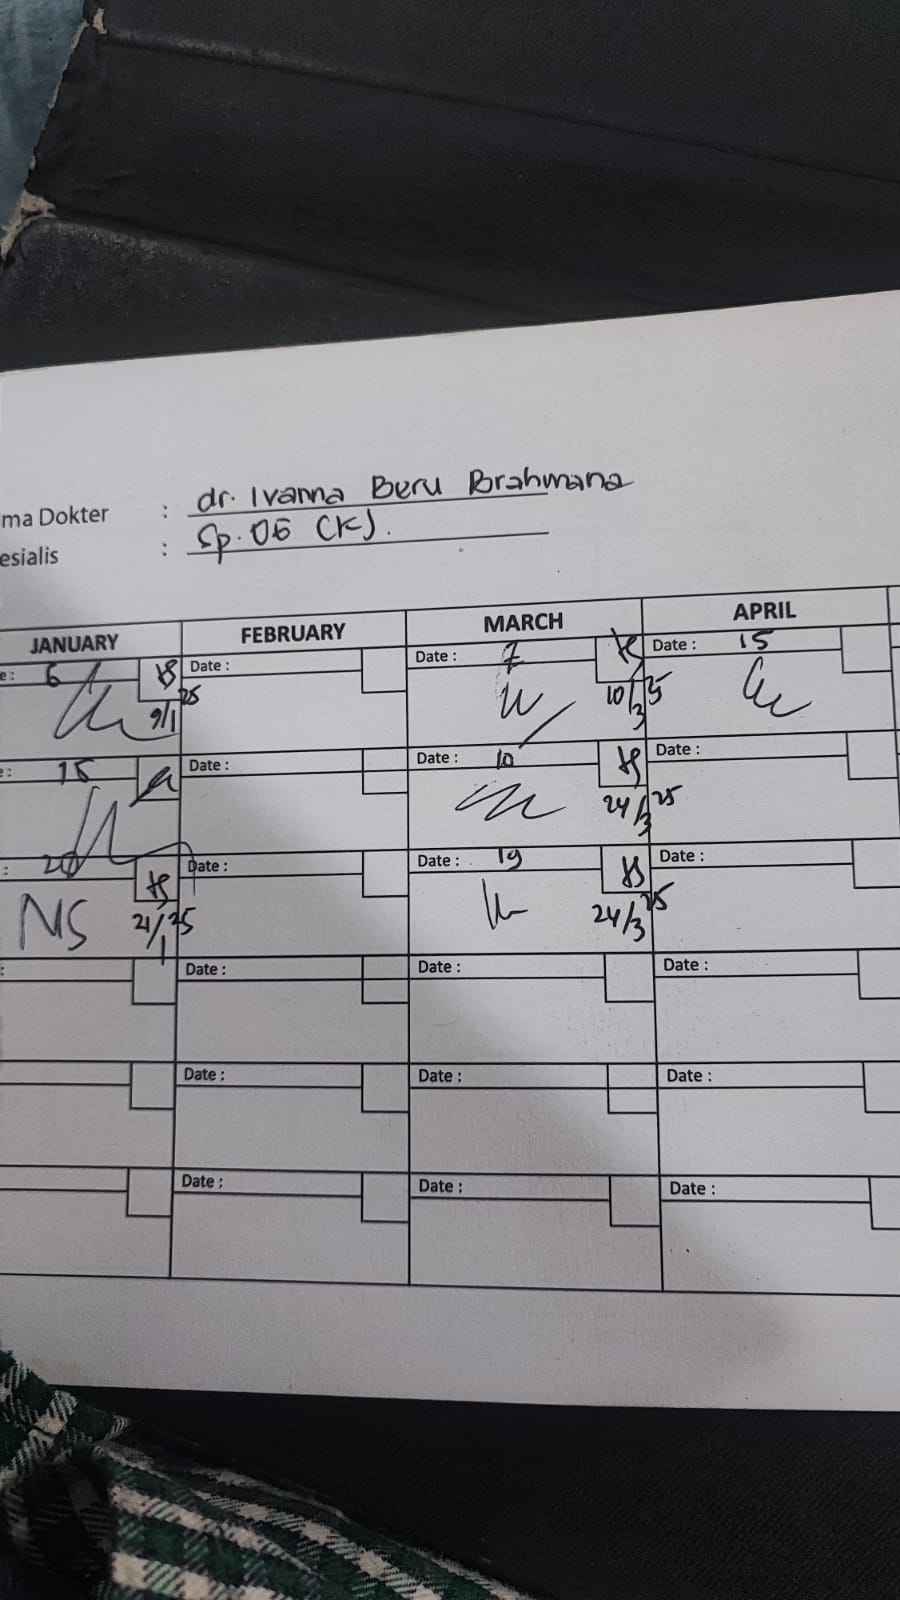 ma Dokter : dr. Ivanna Beru Brahmana
esialis : Sp. OG (K).
JANUARY FEBRUARY MARCH APRIL
e : 6 Date : Date : 7 Date : 15
9/1 25 10/3 25
e : 15 Date : Date : 10 Date :
24/3 25
: 20 Date : Date : 19 Date :
NS 21/1 25 24/3 25
: Date : Date : Date :
Date : Date : Date :
Date : Date : Date :